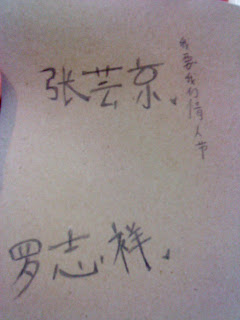 张芸京、
我要我们情人节
罗志祥、